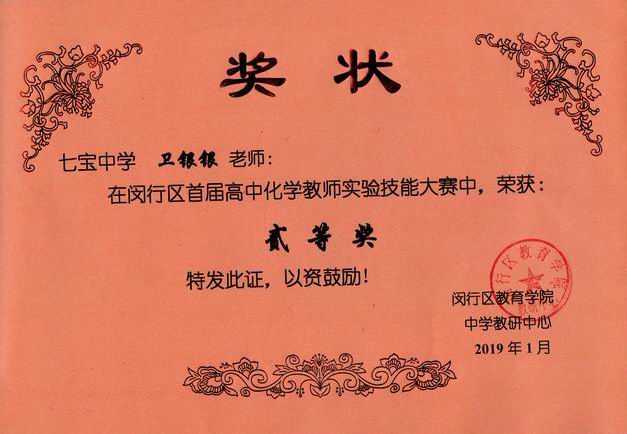 奖状
七宝中学 卫银银 老师：
在闵行区首届高中化学教师实验技能大赛中，荣获：
贰等奖
特发此证，以资鼓励！
闵行区教育学院
中学教研中心
2019年1月
闵行区教育学院